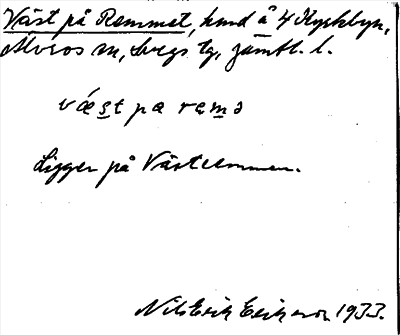 Väst på Remmet, hmd å 4 Kyrkbyn,
Älvros sn, Svegs tg, Jämtl. l.
væst pa remə
Ligger på Västremmen.
Nils Erik Eriksson 1933.